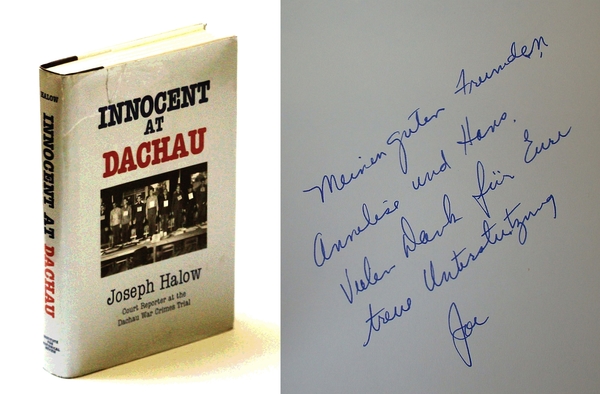 HALOW
INNOCENT AT DACHAU
INNOCENT
AT
DACHAU
Joseph Halow
Court Reporter at the
Dachau War Crimes Trial
Meinen guten Freunden,
Annelise und Hans.
Vielen Dank für Eure
treue Unterstützung
Joe